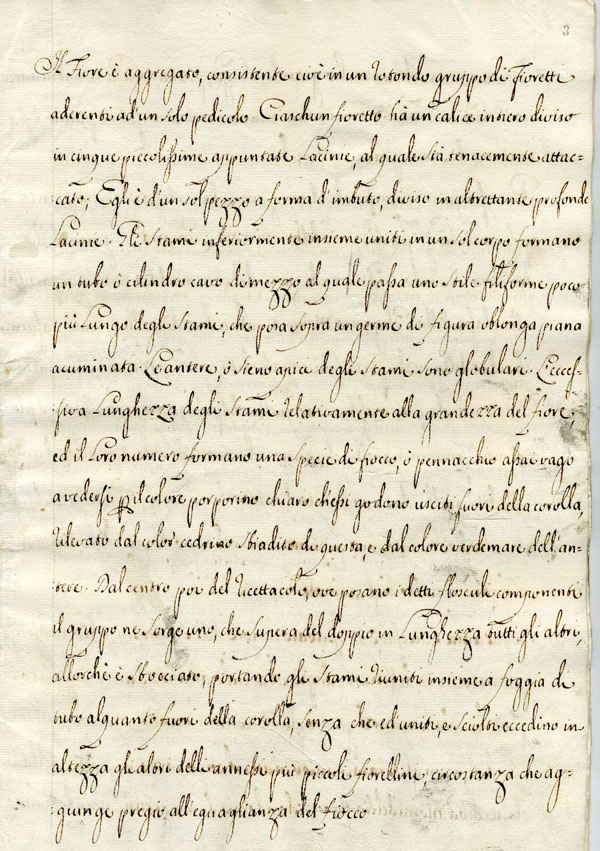 3
Il Fiore è aggregato, consistente cioè in un rotondo gruppo di Fioretti
aderenti ad'un solo pedicolo Ciaschun fioretto hà un calice intiero diviso
in cinque piccolissime appuntate Lacinie, al quale stà tenacemente attac-
cato; Egli è d'un sol pezzo a forma d'imbuto, diviso in altrettante profonde
Lacinie. Gli Stami inferiormente insieme uniti in un sol corpo formano
un tubo ò cilindro cavo di mezzo al quale passa uno stile filiforme poco
più Lungo degli Stami, che posa sopra un germe di figura oblonga piana
acuminata. Le antere, ò sieno apici degli Stami sono globulari. L'ecces-
siva Lunghezza degli Stami relativamente alla grandezza del fiore,
ed il Loro numero formano una specie di fiocco, ò pennacchio assai vago
a vedersi p il colore porporino chiaro ch'essi godono usciti fuori della corolla,
rilevato dal color cedrino sbiadito di questa, e dal colore verdemare dell'an-
tere. Dal centro poi del ricettacolo, ove posano i detti flosculi componenti
il gruppo ne sorge uno, che supera del doppio in Lunghezza tutti gli altri,
allorchè è sbocciato, portando gli Stami riuniti insieme a foggia di
tubo alquanto fuori della corolla, senza che ed uniti, e sciolti eccedino in
altezza gli altri delli annessi più piccoli fiorellini, circostanza che ag-
giunge pregio all'eguaglianza del fiocco